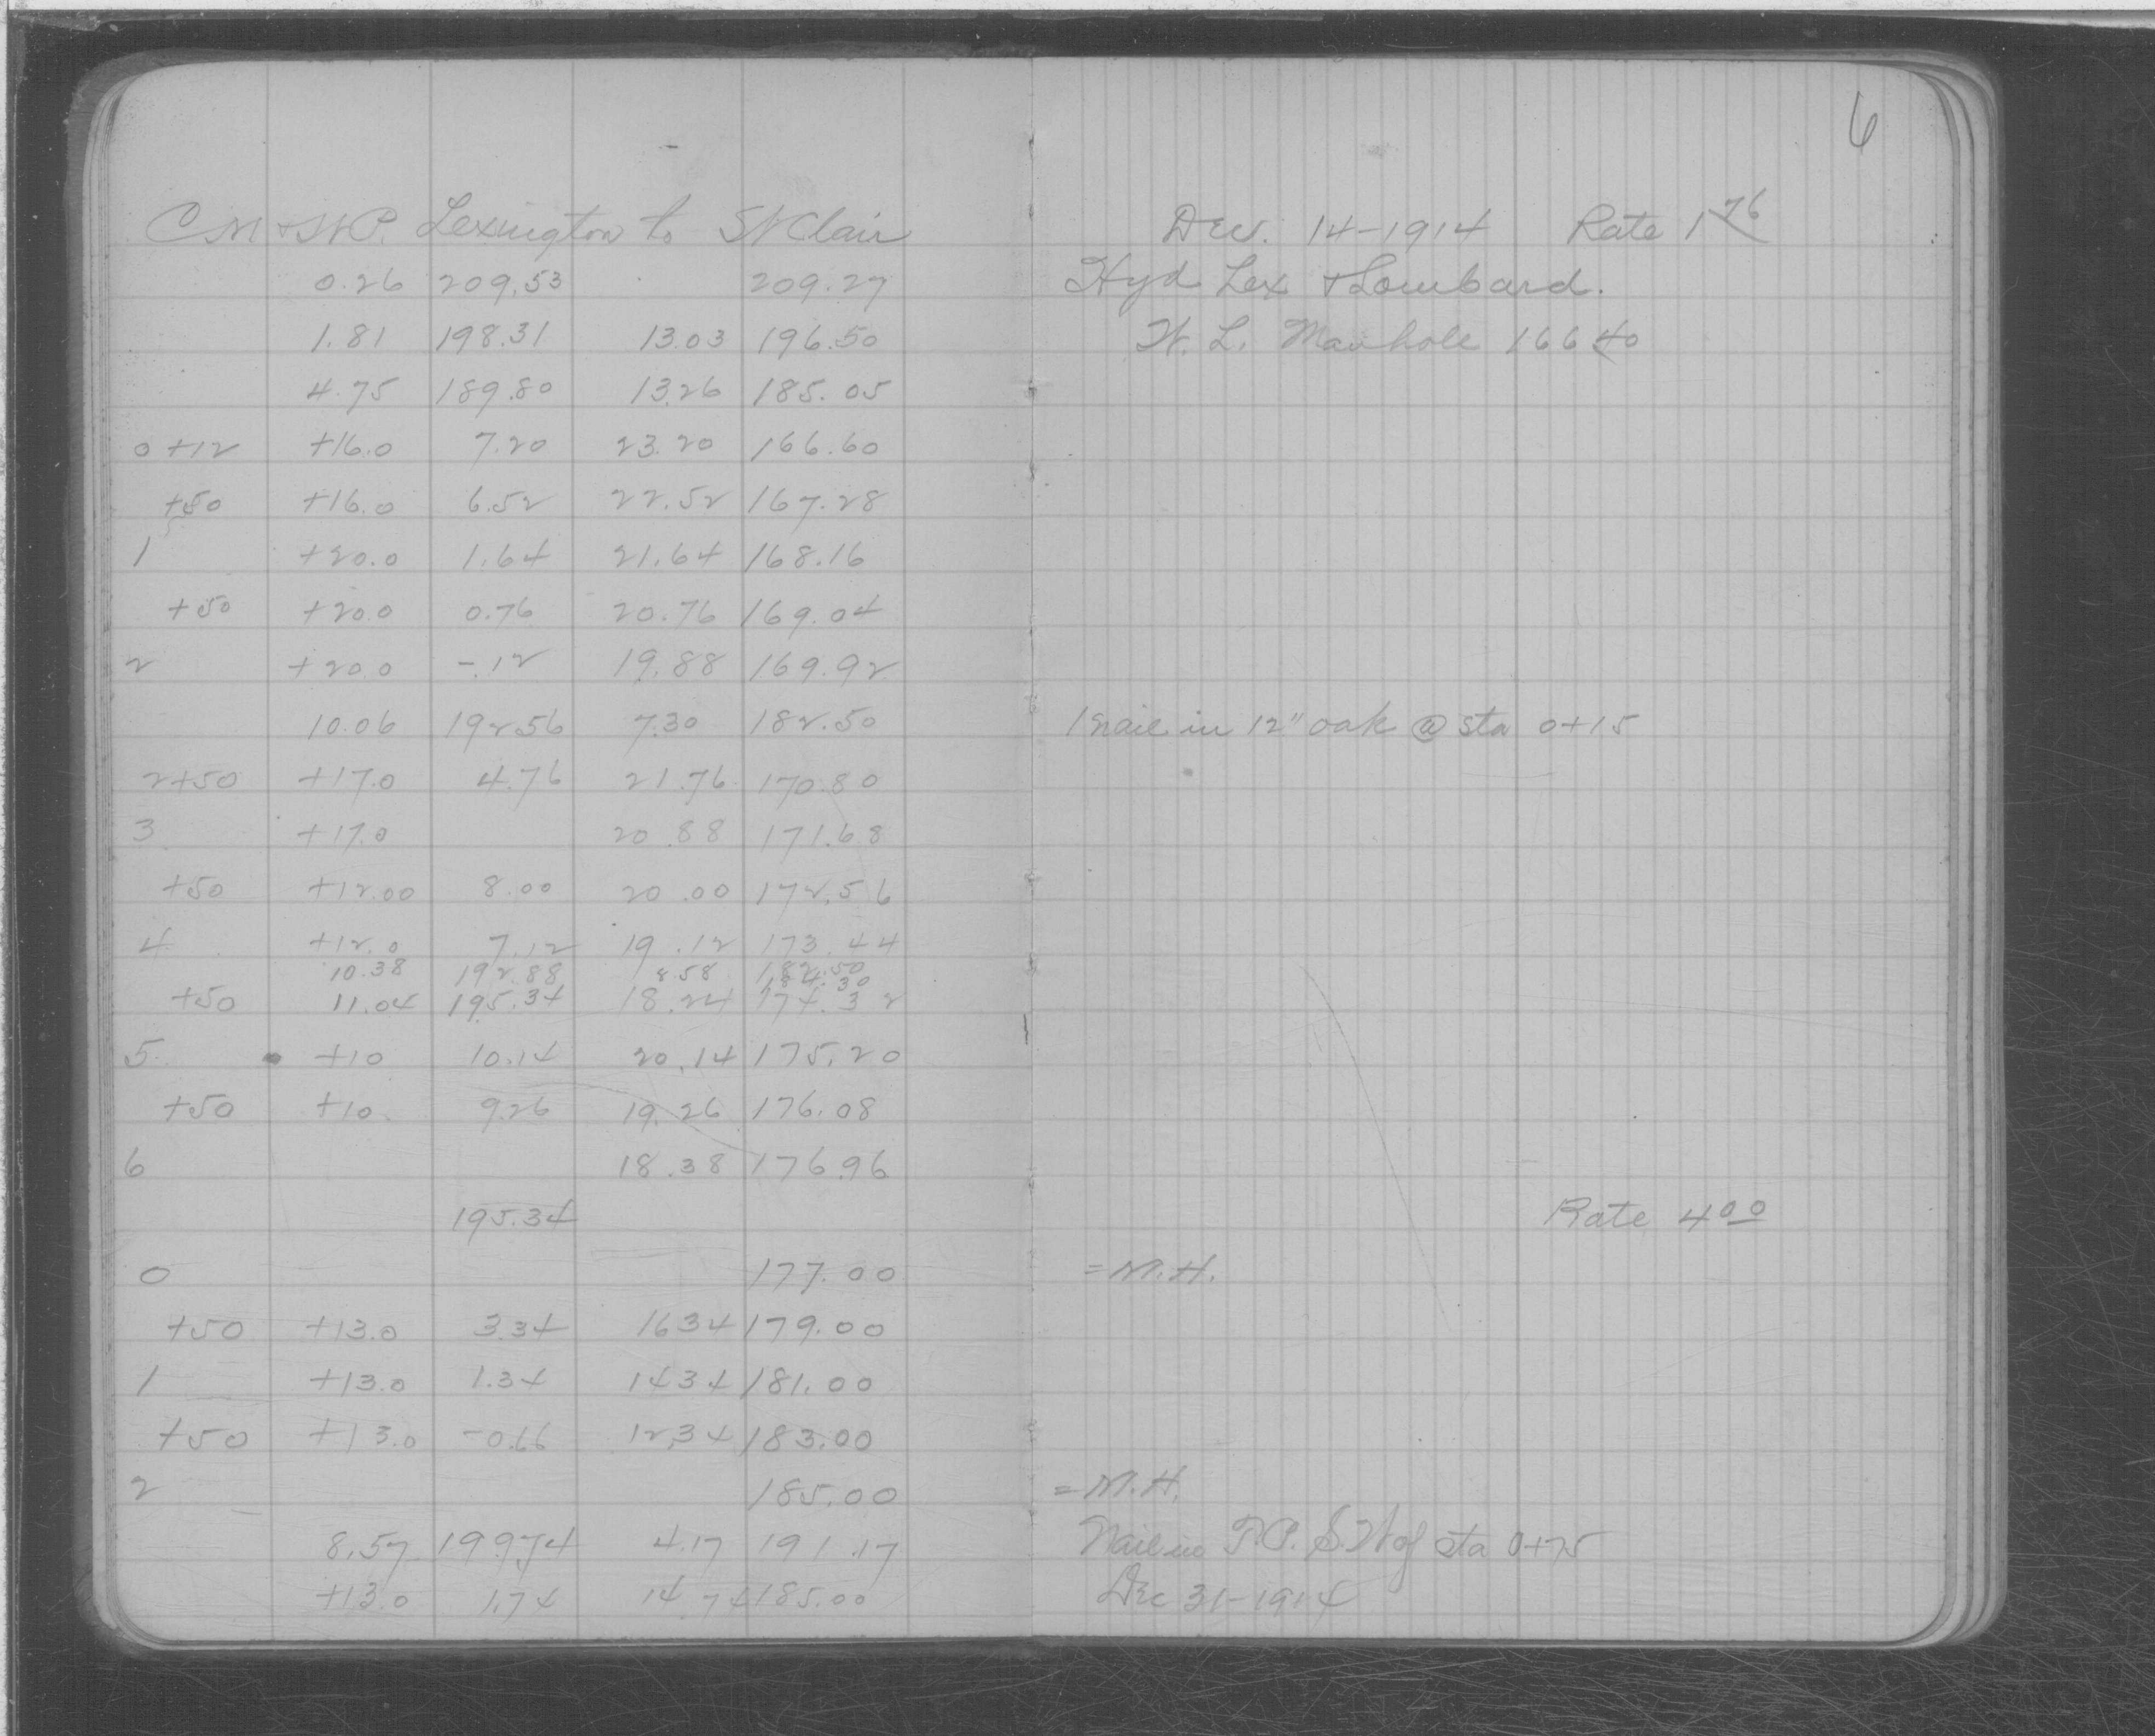 6
C M + N P. Lexington to St Clair
Dec. 14-1914 Rate 1 76
0.26 209.53 209.27 Hyd Lex + Lombard.
1.81 198.31 13.03 196.50 W. L. Manhole 166 40
4.75 189.80 13.26 185.05
0+12 +16.0 7.20 23.20 166.60
+50 +16.0 6.52 22.52 167.28
1 +20.0 1.64 21.64 168.16
+50 +20.0 0.76 20.76 169.04
2 +20.0 -.12 19.88 169.92
10.06 192 56 7.30 182.50 1 nail in 12" oak @ sta 0+15
2+50 +17.0 4.76 21.76 170.80
3 +17.0 20.88 171.68
+50 +12.00 8.00 20.00 172.56
4 +12.0 7.12 19.12 173.44
10.38 192.88 182.50
8.58 184.30
+50 11.04 195.34 18.24 174.32
5 +10 10.14 20.14 175.20
+50 +10 9.26 19.26 176.08
6 18.38 176.96
195.34 Rate 4 00
0 177.00 = M.H.
+50 +13.0 3.34 16 34 179.00
1 +13.0 1.34 14 34 181.00
+50 +13.0 -0.66 12.34 183.00
2 185.00 = M.H.
8.57 199.74 4.17 191.17 Nail in T.P. S.W of sta 0+75
+13.0 1.74 14 74 185.00 Dec 31-1914